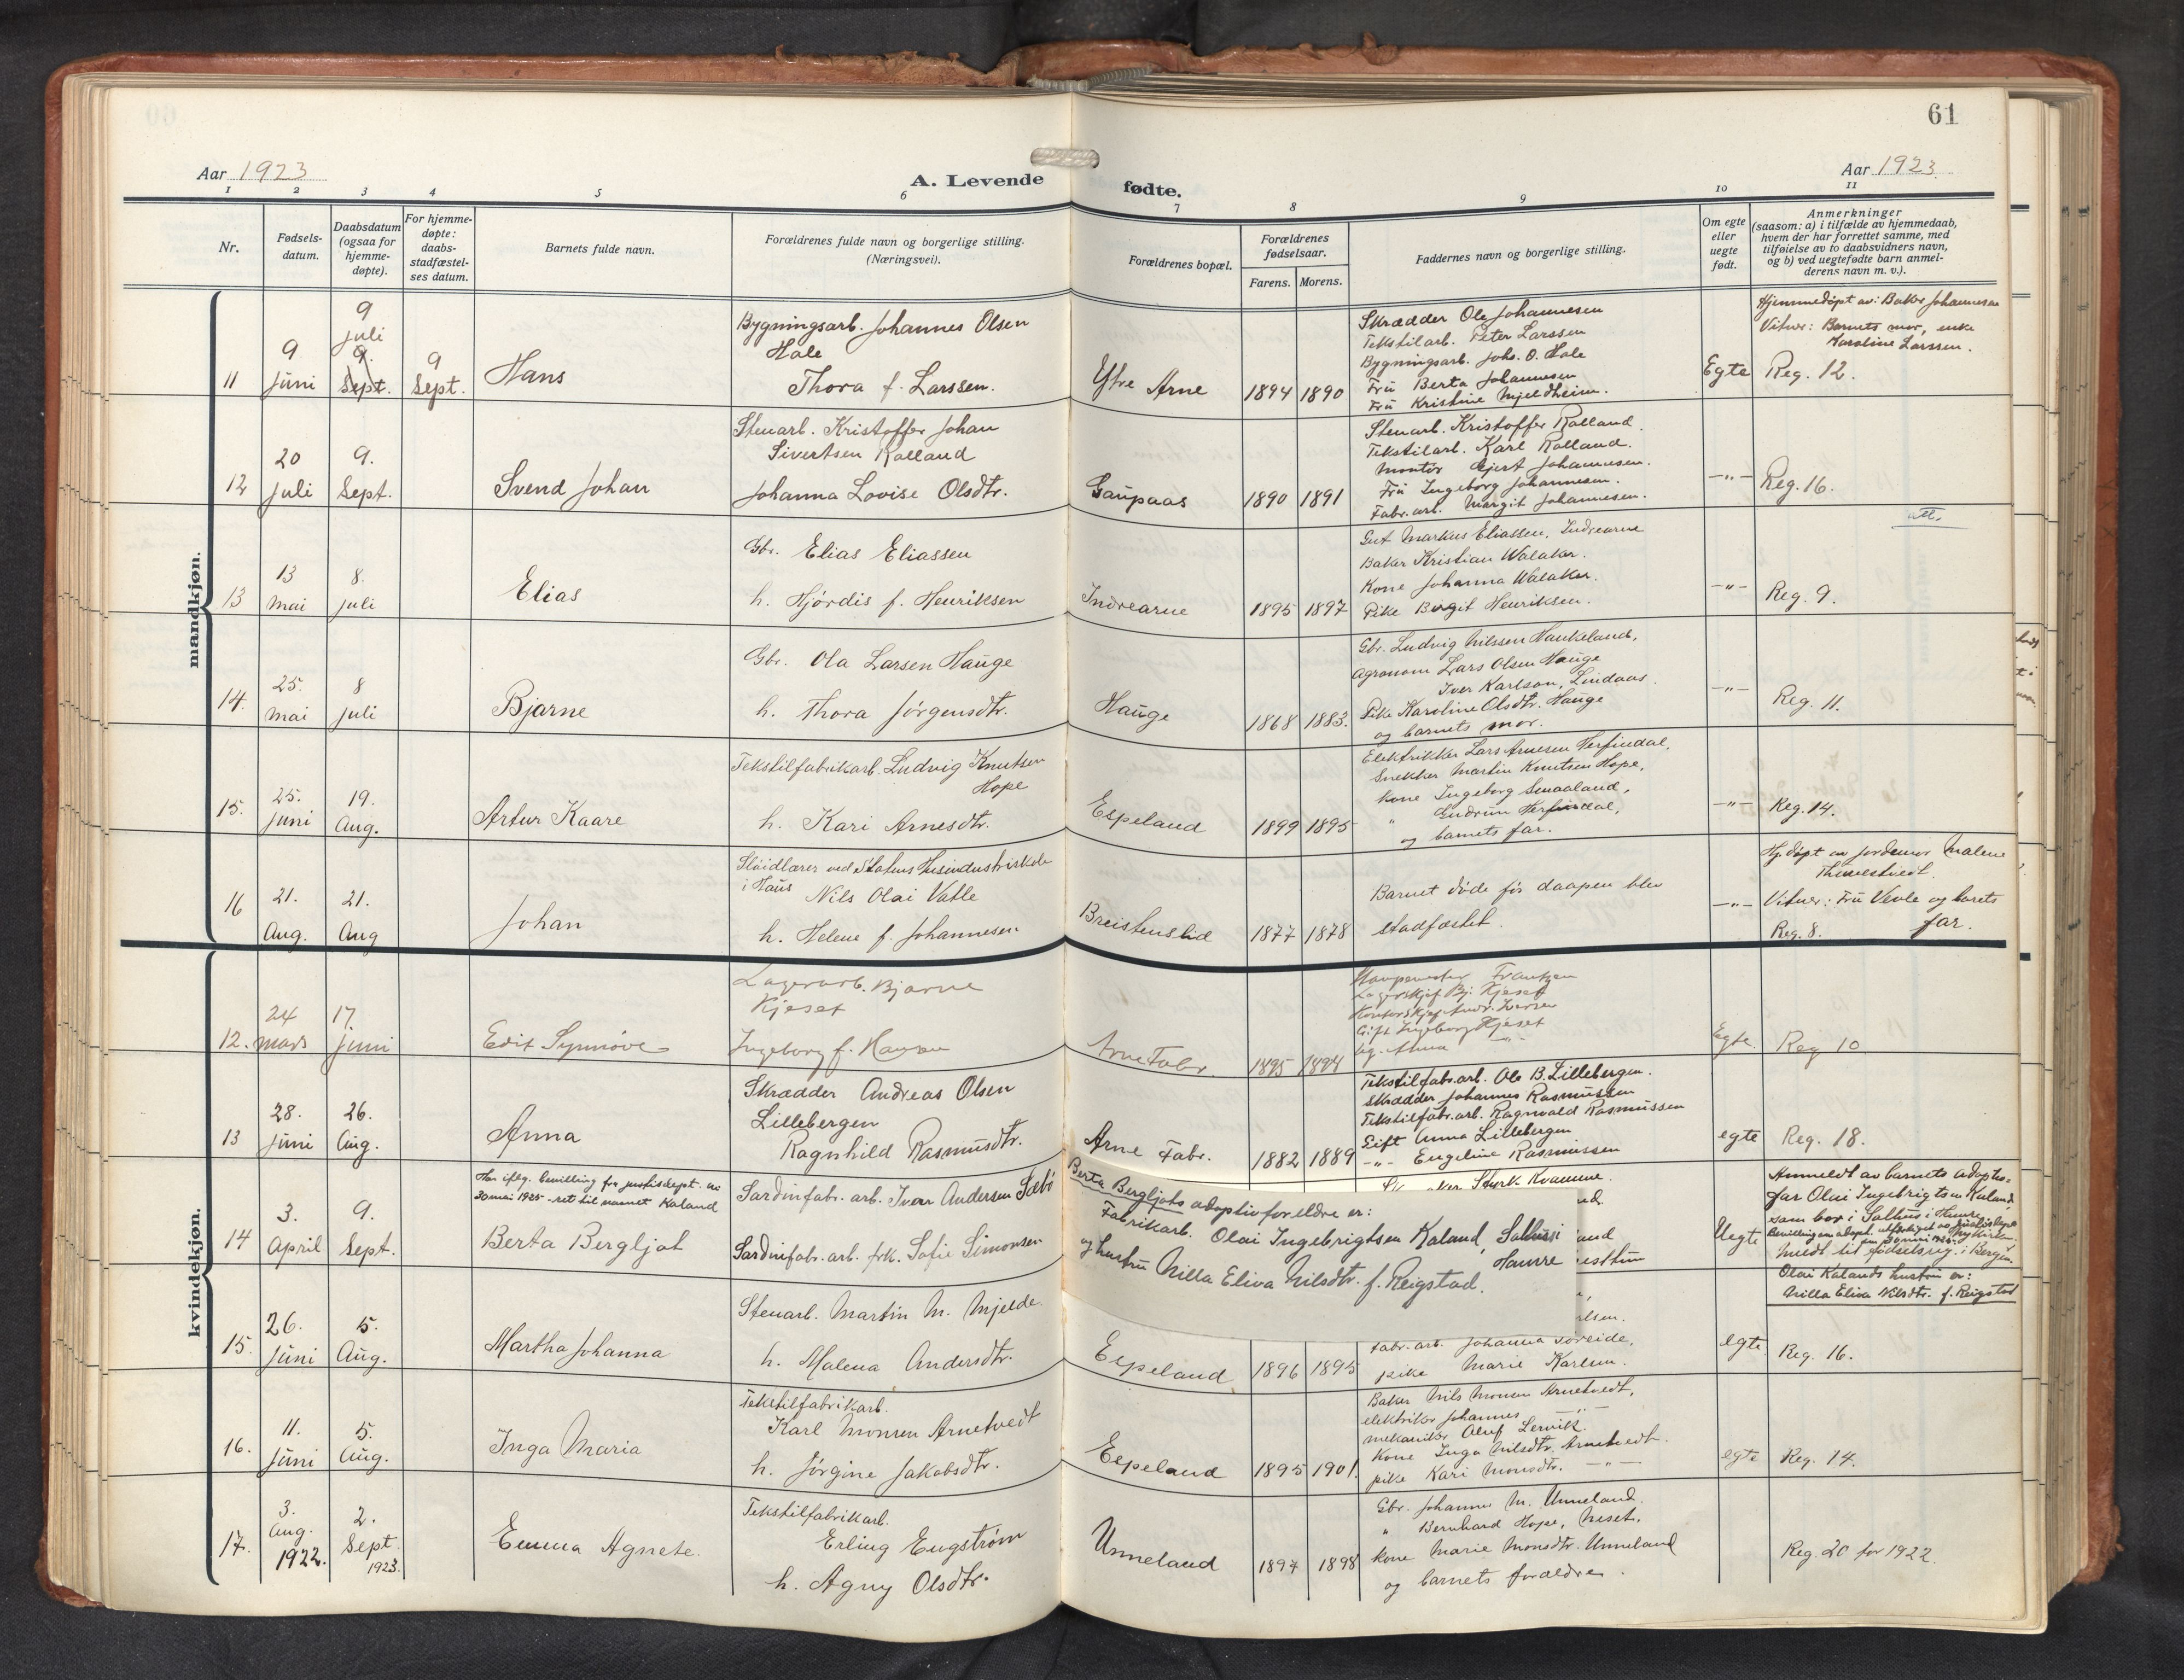 61
Aar 1923
A. Levende fødte.
Aar 1923.
1 2 3 4 5 6 7 8 9 10 11
Nr.
Fødsels-
datum.
Daabsdatum
(ogsaa for
hjemme-
døpte).
For hjemme-
døpte:
daabs-
stadfæstel-
ses datum.
Barnets fulde navn.
Forældrenes fulde navn og borgerlige stilling.
(Næringsvei).
Forældrenes bopæl.
Forældrenes
fødselsaar.
Farens. Morens.
Faddernes navn og borgerlige stilling.
Om egte
eller
uegte
født.
Anmerkninger
(saasom: a) i tilfælde av hjemmedaab,
hvem der har forrettet samme, med
tilføielse av to daabsvidners navn,
og b) ved uegtefødte barn anmel-
derens navn m. v.).
mandkjøn.
11
9
Juni
9
juli
9.
Sept.
9
Sept.
Hans
Bygningsarb. Johannes Olsen
Hole
Thora f. Larssen.
Ytre Arne
1894 1890
Skrædder Ole Johannesen
Tekstilarb. Peter Larssen
Bygningsarb. Johs. O. Hole
Frü Berta Johannesen
Frü Kristine Mjeldheim.
Egte
Hjemmedøpt av: Baker Johannesen
Vitner: Barnets mor, enke
Karoline Larssen.
Reg. 12.
12
20
Juli
9.
Sept.
Svend Johan
Stenarb. Kristoffer Johan
Sivertsen Rolland
Johanna Lovise Olsdtr.
Gaupaas
1890 1891
Stenarb. Kristoffer Rolland.
Tekstilarb. Karl Rolland.
Montør Gjert Johannesen.
Frü Ingeborg Johannesen.
Fabr. arb. Margit Johannesen.
—"—
Reg. 16.
att.
13
13
Mai
8.
juli
Elias
Gbr. Elias Eliassen
h. Hjørdis f. Henriksen
Indrearne
1895 1897
Gut Markus Eliassen, Indrearne
Baker Kristian Walaker.
Kone Johanna Walaker.
Pike Birgit Henriksen.
—"—
Reg. 9.
14.
25.
Mai
8
juli
Bjarne
Gbr. Ola Larsen Hauge
h. Thora Jørgensdtr.
Hauge
1868 1883.
Gbr. Ludvig Nilssen Haukeland,
Agronom Lars Olsen Hauge
Iver Karlson, Lindaas.
Pike Karoline Olsdtr. Hauge
og barnets mor.
—"—
Reg. 11.
15.
25.
Juni
19.
Aug.
Artur Kaare
Tekstilfabrikarb. Ludvig Knutsen
Hope
h. Kari Arnesdtr.
Espeland
1899 1895
Elektrikker Lars Arnesen Herfindal,
Snekker Martin Knutsen Hope,
Kone Ingeborg Smaaland,
" Gudrun Herfindal,
og barnets far.
—"—
Reg. 14.
16
21.
Aug.
21.
Aug
Johan
Sløidlærer ved Statens Husindustriskole
i Haus
Nils Olai Vatle
h. Helene f. Johannesen
Breistenslid
1877 1878
Barnet døde før daapen blev
stadfæstet.
—"—
Hj.døpt av jordemor Malene
Vitner: Frü Veole og barets
far.
Reg. 8.
kvindekjøn.
12.
24
mars
17.
juni
Edit Synnöve
Lagerarb. Bjarne
Kjeset
Ingeborg f. Hansen
Arne Fabr.
1895 1894
Frantzen
Lagerskjef Bj. Kjeset
Gift Ingeborg Kjeset
Ug. Anna —"—
Egte
Reg 10
13
28.
Juni
26.
Aug.
Anna
Skrædder Andreas Olsen
Lillebergen
Ragnhild Rasmusdtr.
Arne Fabr.
1882 1889
Tekstilfabr.arb. Ole B. Lillebergen.
Skrædder Johannes Rasmussen
Tekstilfabr.arb. Ragnvald Rasmussen
Gift Anna Lillebergen
—"— Engeline Rasmussen
egte
Reg. 18.
14
3.
April
9.
Sept.
Har iflg. bevilling fra justisdept. av
30 mai 1925 - ret til navnet Kaland
Berta Bergljot
Sardinfabr. arb. Iver Andersen Sæbø
Sardinfabr. arb. frk. Sofie Simonsen
Berta Bergljots adoptivforeldre er:
Fabrikarb. Olai Ingebrigtsen Kaland, Salhus i
Hamre
og hustru Nilla Eliva Nilsdtr. f. Reigstad.
Sturk Kvamme.
Uegte
Anmeldt av barnets adoptiv-
far Olai Ingebrigtsen Kaland
som bor i Salhus i Hamre.
meldt til fødselsreg. i Bergen.
Olai Kalands hustru er:
Nilla Elisa Nilsdtr. f. Reigstad
15.
26.
Juni
5.
Aug.
Martha Johanna
Stenarb. Martin M. Mjelde.
h. Malena Andersdtr.
Espeland
1896 1895
Fabr. arb. Johanna Soreide,
pike Marie Karlsen.
egte
Reg. 16.
16.
11.
Juni
5.
Aug.
Inga Maria
Tekstilfabrikarb.
Karl Monsen Arnetvedt
h. Jørgine Jakobsdtr.
Espeland
1895 1901.
Baker Nils Monsen Arnetvedt,
elektriker Johannes —"—
mekaniker Oluf Lervik.
Kone Inga Nilsdtr. Arnetvedt.
pike Kari Monsdtr. —"—
egte
Reg. 14.
17.
3.
Aug.
1922.
2.
Sept.
1923.
Emma Agnete.
Tekstilfabrikarb.
Erling Engstrøm
h. Agny Olsdtr.
Unneland
1897 1898
Gbr. Johannes M. Unneland.
" Bernhard Hope, Neset.
Kone Marie Monsdtr. Unneland
og barnets forældre.
Reg. 20 for 1922.